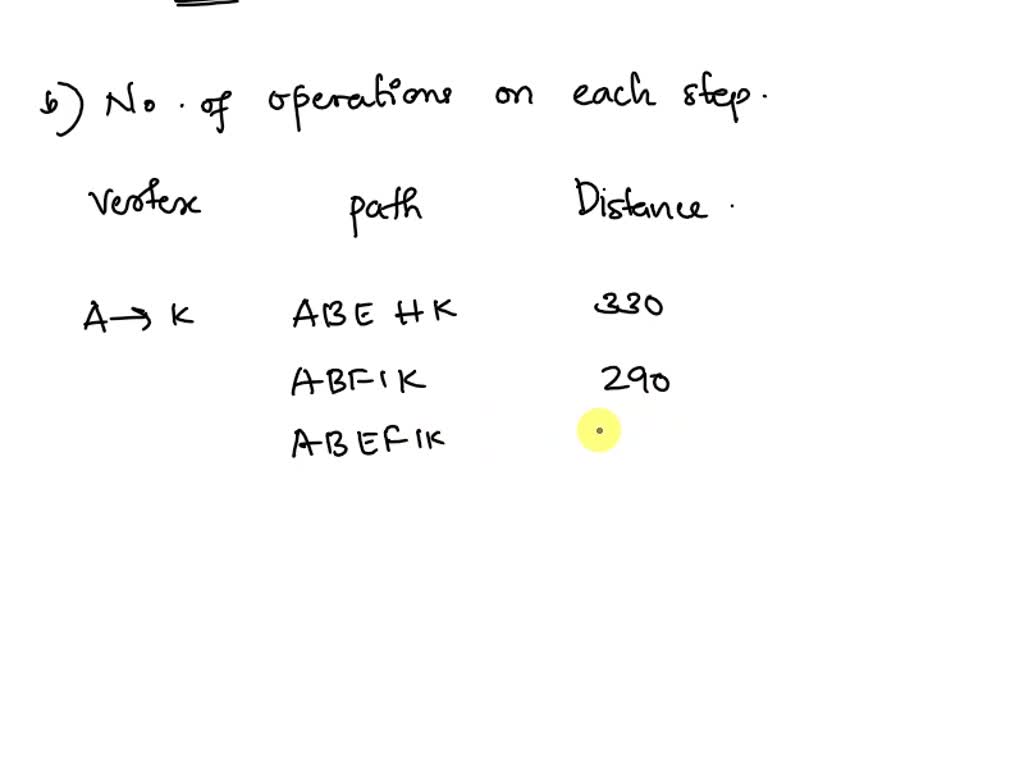 b) No. of operations on each step.
Vertex path Distance.
A→ K ABE HK 330
ABFIK 290
ABEFIK